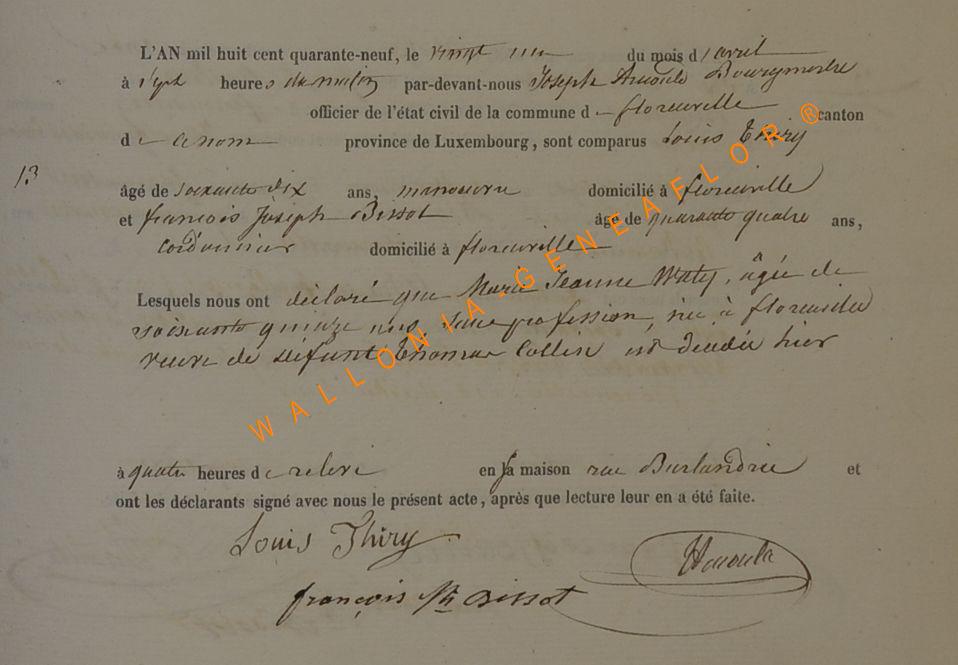 L'AN mil huit cent quarante-neuf, le vingt un du mois d'avril
à sept heures du matin par-devant-nous Joseph Bourgmestre
officier de l'état civil de la commune de florenville canton
de ce nom province de Luxembourg, sont comparus Louis Thiry
13
âgé de soixante dix ans, manoeuvre domicilié à florenville
et françois Joseph Bissot âgé de quarante quatre ans,
cordonnier domicilié à florenville
Lesquels nous ont déclaré que Marie Jeanne âgée de
soixante quinze ans, sans profession, née à florenville
veuve de défunt Thomas Collin est décédée hier
à quatre heures de relevé en sa maison rue et
ont les déclarants signé avec nous le présent acte, après que lecture leur en a été faite.
Louis Thiry
françois Jh Bissot
WALLONIA-GENEAFLOR®